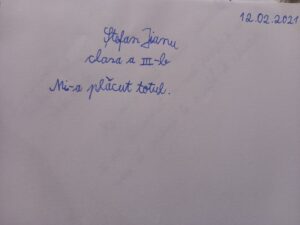 12.02.2021
Ștefan Jianu
clasa a III-b
Mi-a plăcut totul.